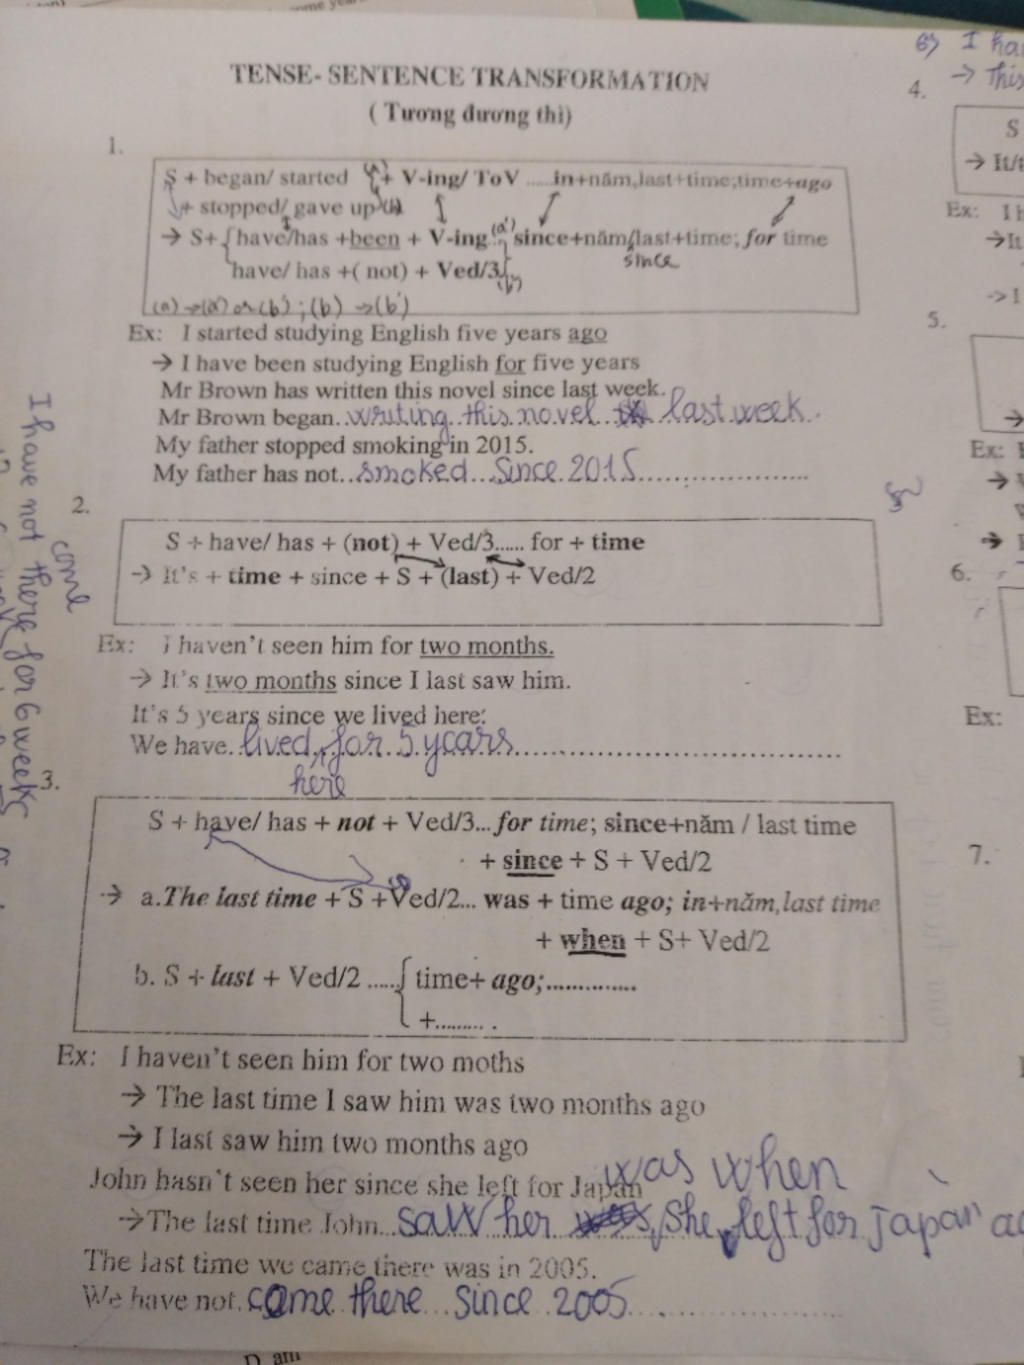 TENSE- SENTENCE TRANSFORMATION
( Tương đương thì)
1.
S + began/ started (a) + V-ing/ ToV .....in+năm,last+time;time+ago
+ stopped/ gave up (b)
→ S+ have/has +been + V-ing.. (a') since+năm/last+time; for time
since
have/ has +( not) + Ved/3 (b')
(a) → (a') or (b') ; (b) → (b')
Ex: I started studying English five years ago
→ I have been studying English for five years
Mr Brown has written this novel since last week.
Mr Brown began..writing this novel last week.
My father stopped smoking in 2015.
My father has not..smoked...Since 2015......................
2.
S + have/ has + (not) + Ved/3...... for + time
→ It's + time + since + S + (last) + Ved/2
Ex: I haven't seen him for two months.
→ It's two months since I last saw him.
It's 5 years since we lived here:
We have..lived for 5 years........................................
here
3.
S + have/ has + not + Ved/3... for time; since+năm / last time
+ since + S + Ved/2
→ a.The last time + S +Ved/2... was + time ago; in+năm,last time
+ when + S+ Ved/2
b. S + last + Ved/2 ..... time+ ago;..............
+......... .
Ex: I haven't seen him for two moths
→ The last time I saw him was two months ago
→ I last saw him two months ago
John hasn't seen her since she left for Japan
was when
→The last time John...saw her she left for Japan
The last time we came there was in 2005.
We have not.come there...since 2005.......................
I have not there for 6 week
come
6) I ha
→ This
4.
S
→ It/t
Ex: I h
→It
->I
5.
→
Ex:
→
→
6.
Ex:
7.
D. am